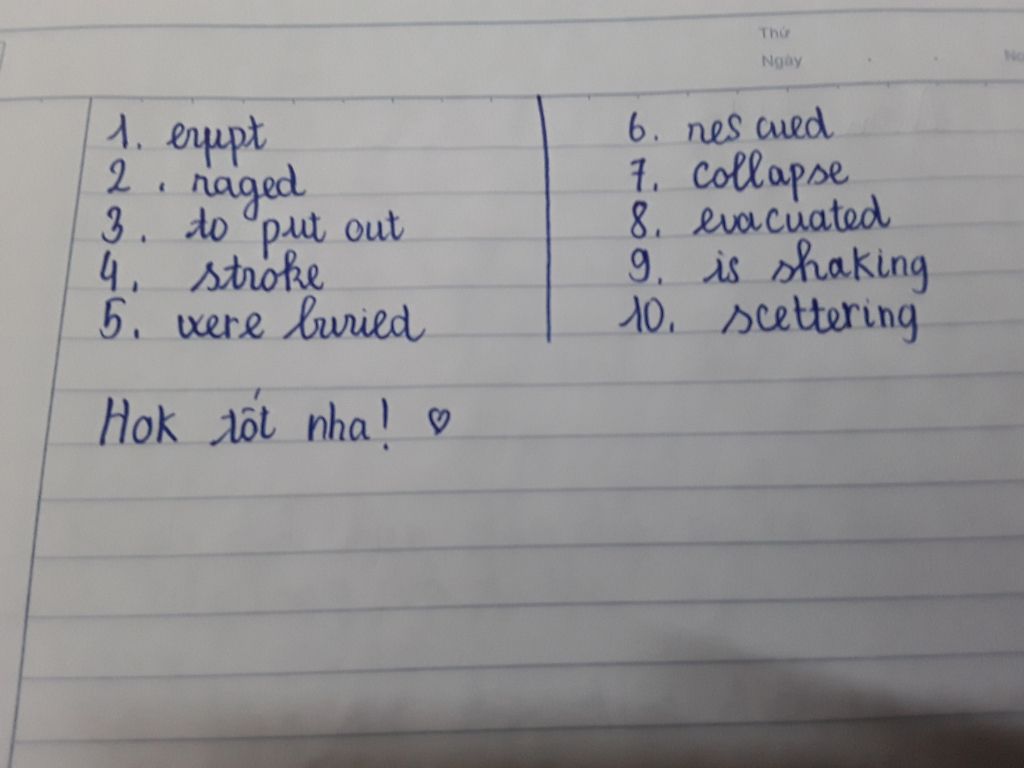 Thứ
Ngày
1. erupt
2. raged
3. to put out
4. stroke
5. were buried
6. rescued
7. collapse
8. evacuated
9. is shaking
10. scettering
Hok tốt nha! ♡